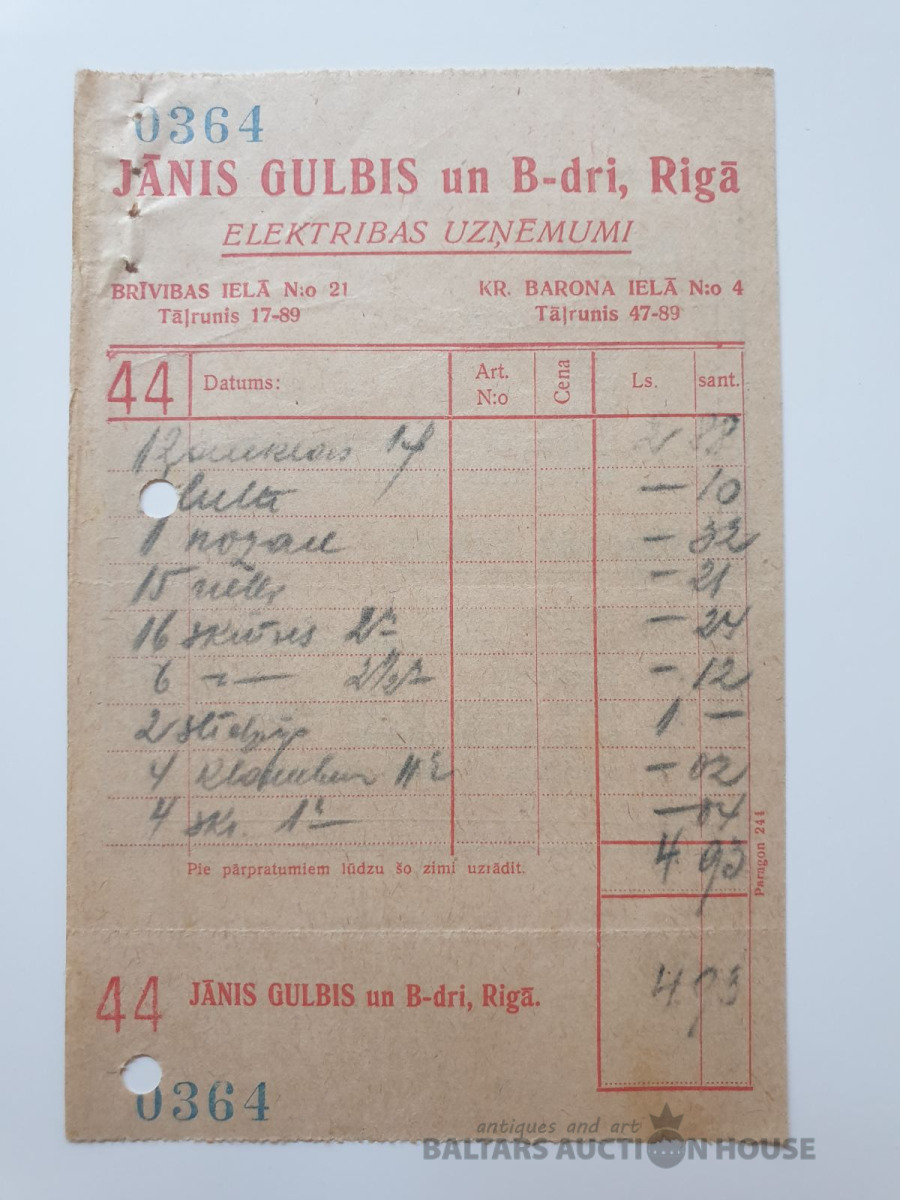 0364
JĀNIS GULBIS un B-dri, Rigā
ELEKTRIBAS UZŅĒMUMI
BRĪVIBAS IELĀ N:o 21 KR. BARONA IELĀ N:o 4
Tāļrunis 17-89 Tāļrunis 47-89
44 Datums: Art. N:o Cena Ls. sant.
12
— 10
1 — 32
15 — 21
16 skrūves 2" — 24
6 —"— 2½" — 12
2 1 —
4 — 02
4 skr. 1" — 04
4 93
Pie pārpratumiem lūdzu šo zimi uzrādit.
Paragon 244
4 93
44 JĀNIS GULBIS un B-dri, Rigā.
0364
antiques and art
BALTARS AUCTION HOUSE